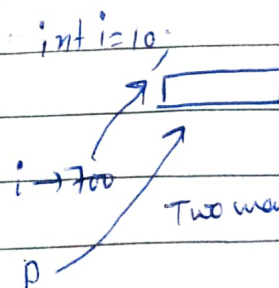 int i=10;
i→700
Two
p